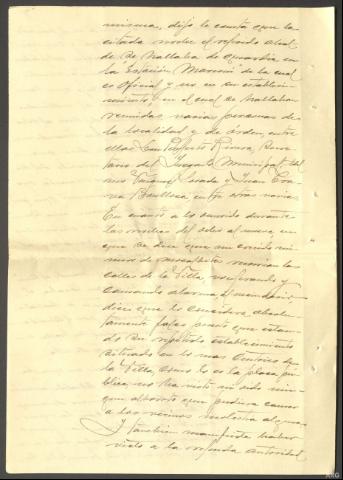 misma, dijo le consta que la
citada noche el referido alcal-
de se hallaba de guardia en
la "Estación Marconi" de la cual
es oficial y no en su estableci-
miento, en el cual se hallaban
reunidas varias personas de
la localidad y de órden, entre
ellas Don Ruperto Rivera, Secre-
tario del Juzgado Municipal, del
mio y Juan
entre otras varias
En cuanto a lo ocurrido durante
las noches del ocho al nueve, en
que se dice que un crecido nú-
mero de mozalbetes recorrian las
calles de la Villa, vociferando y
causando alarma, el vecindario,
dice que lo considera absolu-
tamente falso puesto que estan-
do su repetido establecimiento
situado en lo mas céntrico de
la Villa, como lo es la plaza pú-
blica, no ha visto ni oido nin-
gun alboroto que pudiera causar
a los vecinos molestia alguna.
Y tambien manifiesta haber
visto a la referida autoridad